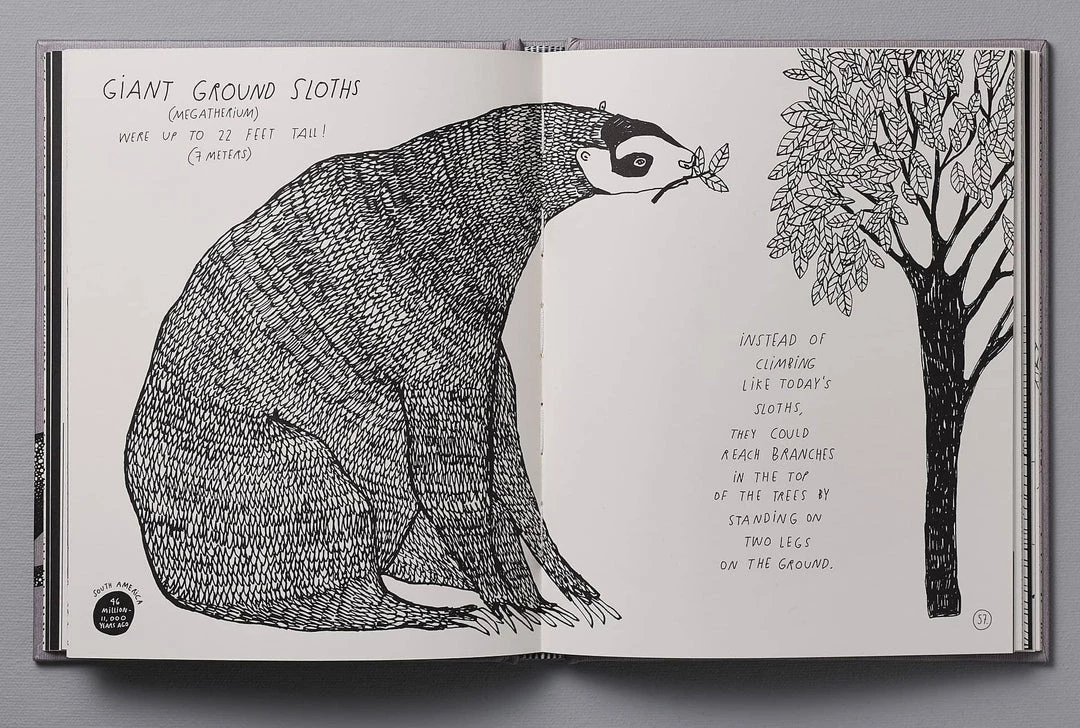 GIANT GROUND SLOTHS
(MEGATHERIUM)
WERE UP TO 22 FEET TALL!
(7 METERS)
SOUTH AMERICA
46
MILLION-
11,000
YEARS AGO
INSTEAD OF
CLIMBING
LIKE TODAY'S
SLOTHS,
THEY COULD
REACH BRANCHES
IN THE TOP
OF THE TREES BY
STANDING ON
TWO LEGS
ON THE GROUND.
57.